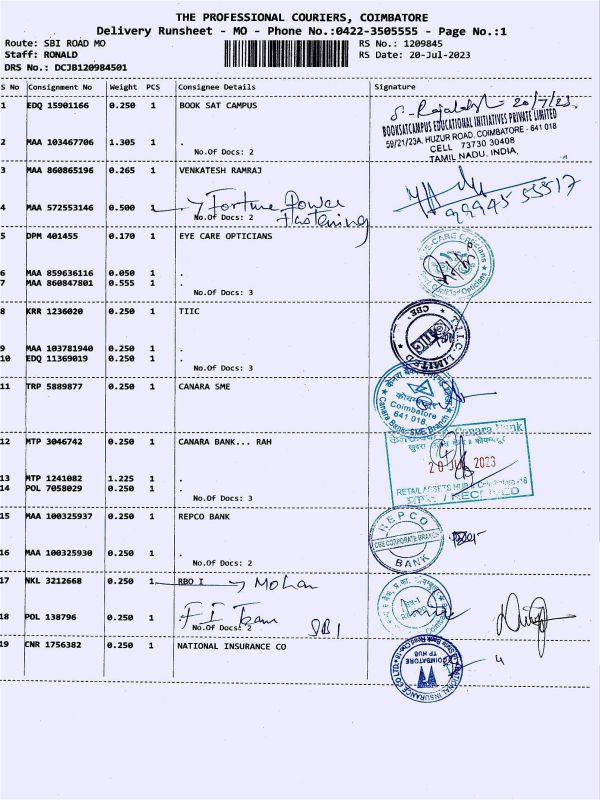 THE PROFESSIONAL COURIERS, COIMBATORE
Delivery Runsheet - MO - Phone No.:0422-3505555 - Page No.:1
Route: SBI ROAD MO RS No.: 1209845
Staff: RONALD RS Date: 20-Jul-2023
DRS No.: DCJB120984501
S No Consignment No Weight PCS Consignee Details Signature
1 EDQ 15901166 0.250 1 BOOK SAT CAMPUS
20/7/23
BOOKSATCAMPUS EDUCATIONAL INITIATIVES PRIVATE LIMITED
59/21/23A, HUZUR ROAD, COIMBATORE - 641 018
CELL 73730 30408
TAMIL NADU. INDIA,
2 MAA 103467706 1.305 1 .
No.Of Docs: 2
3 MAA 860865196 0.265 1 VENKATESH RAMRAJ
4 MAA 572553146 0.500 1 Fortune Power
No.Of Docs: 2 Fastening
99945 55517
5 DPM 401455 0.170 1 EYE CARE OPTICIANS
EYE-CARE Opticians
6 MAA 859636116 0.050 1 .
7 MAA 860847801 0.555 1 .
No.Of Docs: 3
8 KRR 1236020 0.250 1 TIIC
T.I.I.C. LIMITED
CBE
TIIC
9 MAA 103781940 0.250 1 .
10 EDQ 11369019 0.250 1 .
No.Of Docs: 3
11 TRP 5889877 0.250 1 CANARA SME
Coimbatore
641 018.
Canara Bank, SME Branch
12 MTP 3046742 0.250 1 CANARA BANK... RAH
Canara Bank
20 JUL 2023
RETAIL ASSETS HUB
RECEIVED
13 MTP 1241082 1.225 1 .
14 POL 7058029 0.250 1 .
No.Of Docs: 3
15 MAA 100325937 0.250 1 REPCO BANK
REPCO
CBE CORPORATE BRANCH
BANK
16 MAA 100325930 0.250 1 .
No.Of Docs: 2
17 NKL 3212668 0.250 1 RBO I Mohan
18 POL 138796 0.250 1 . F I Team
No.Of Docs: 2 SBI
19 CNR 1756382 0.250 1 NATIONAL INSURANCE CO
COIMBATORE
TP HUB